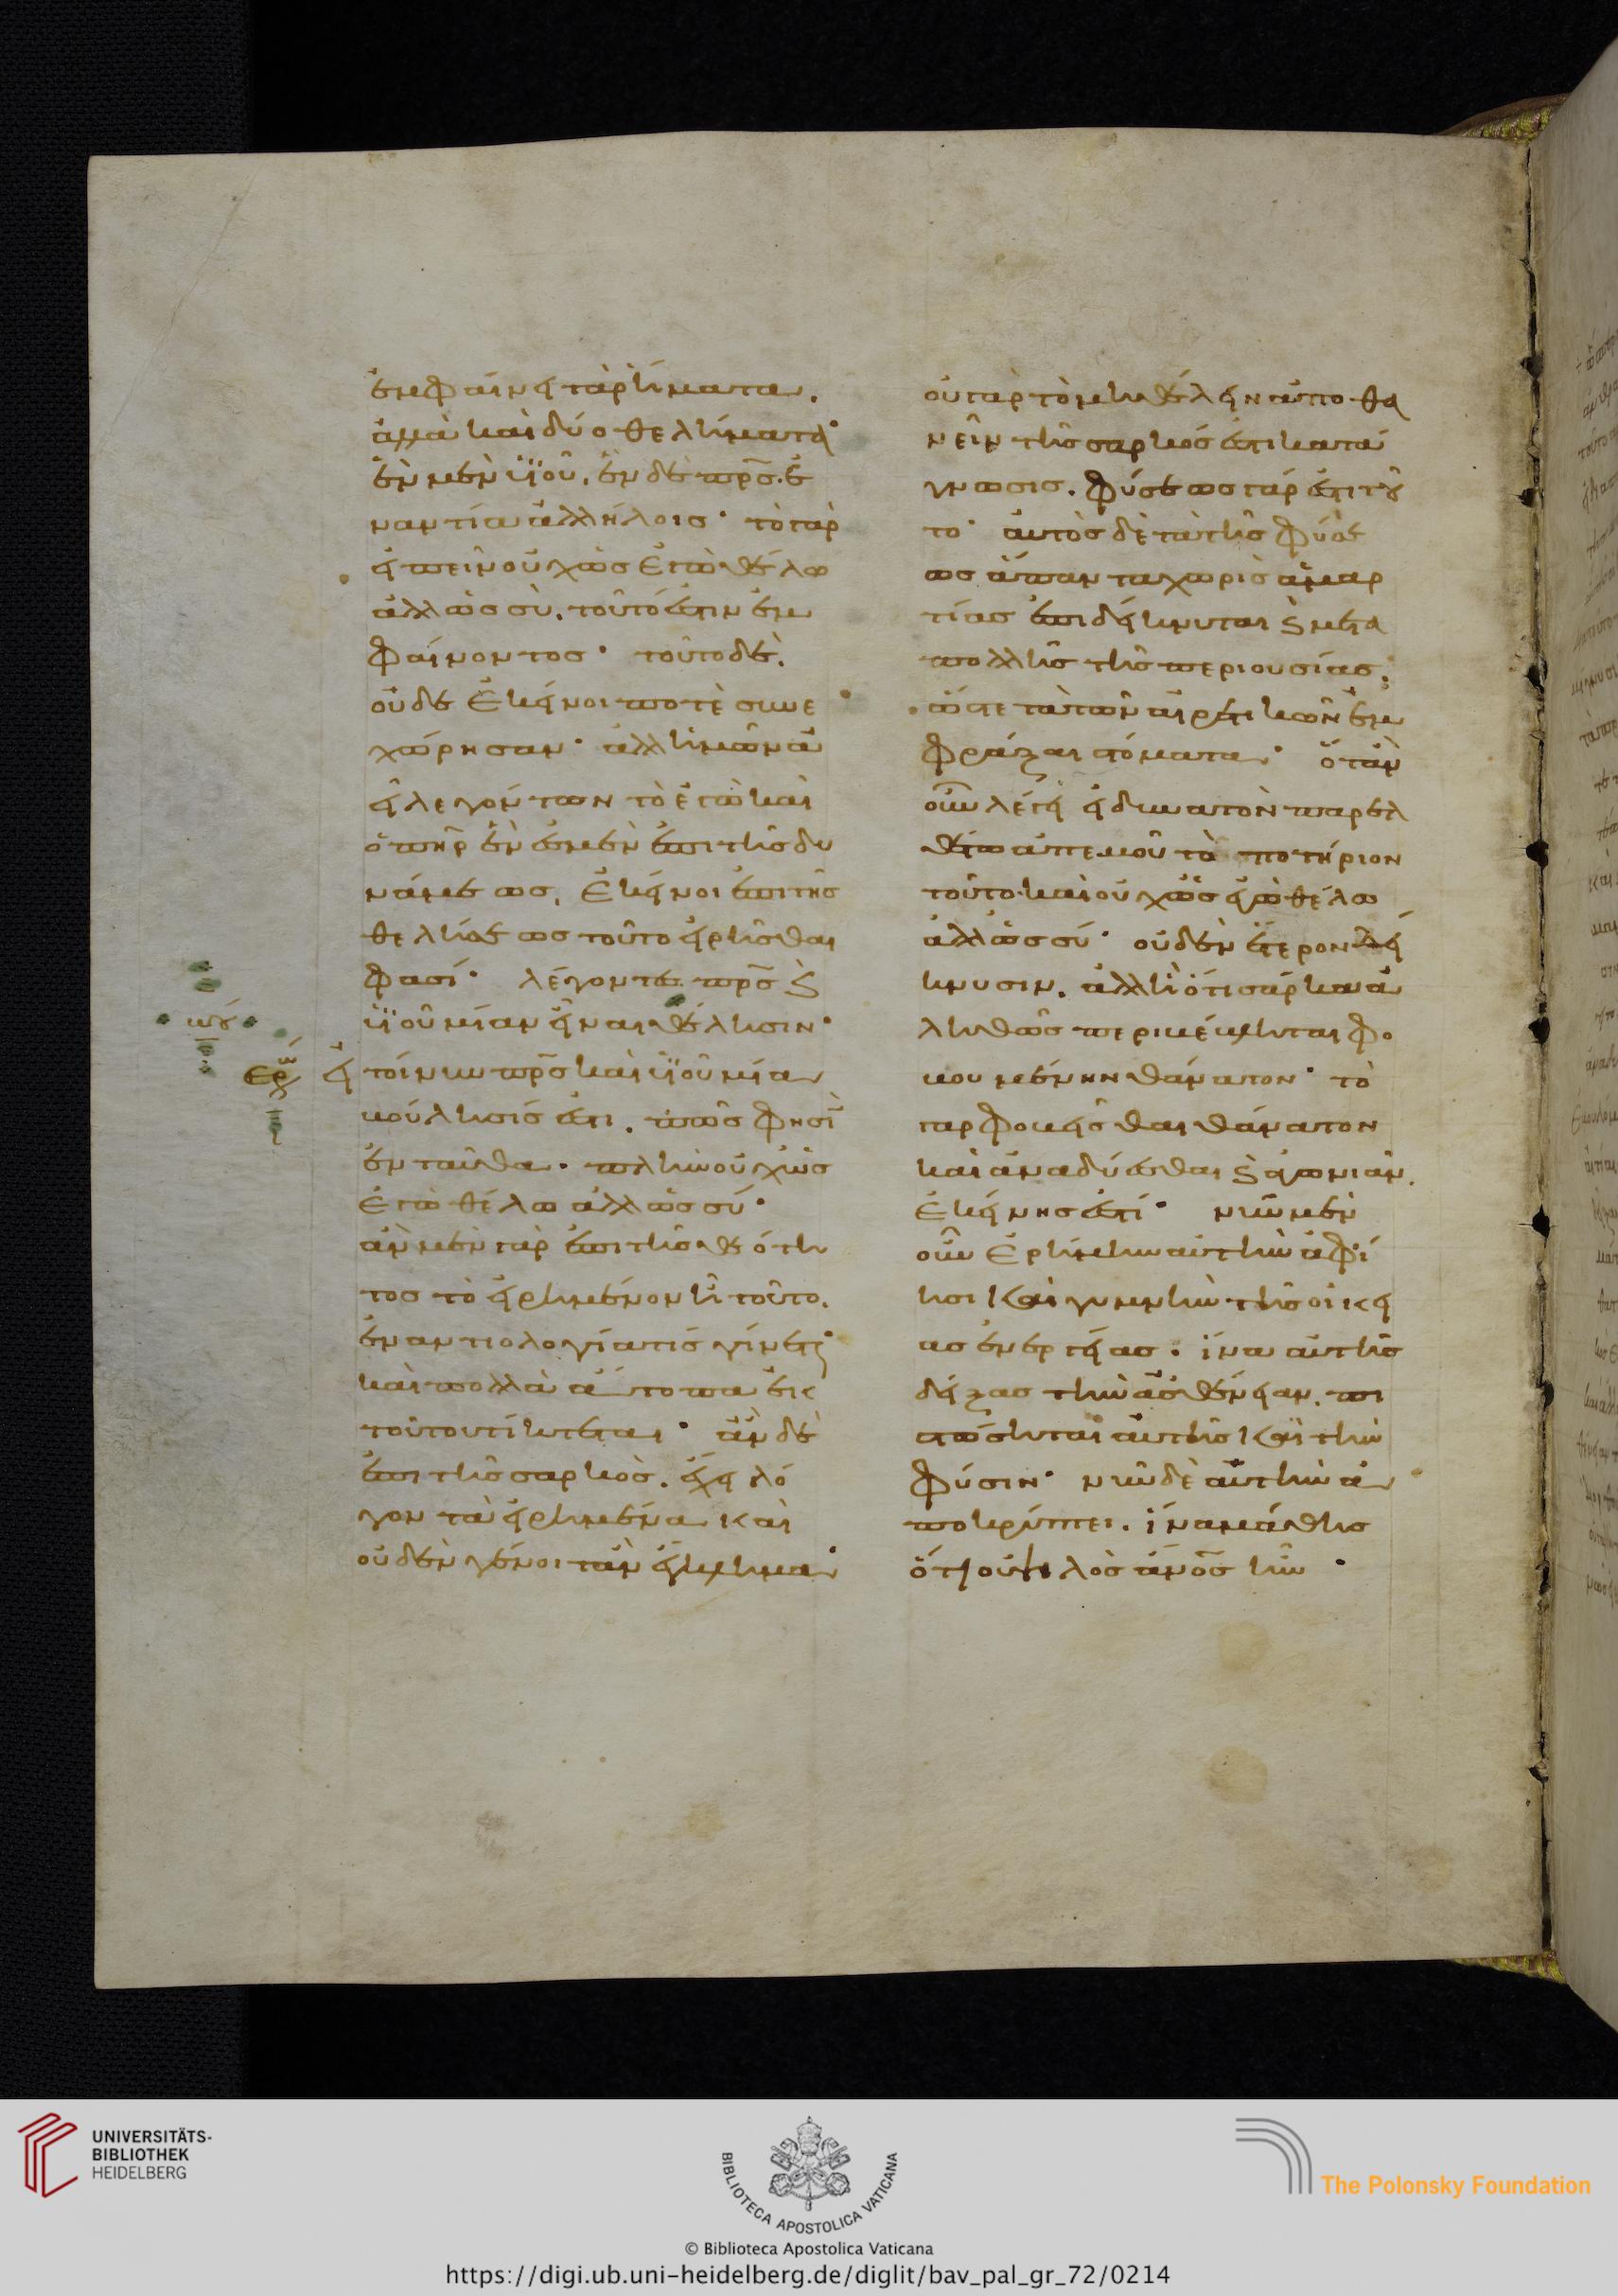 ἐμφαίνει τὰ ῥήματα.
ἀλλὰ καὶ δύο θελήματα·
ἓν μὲν ὑϊοῦ, ἓν δὲ πρσ. ἐ
ναντία ἀλλήλοις· τὸ γὰρ
εἰπεῖν οὐχ ὡς ἐγὼ θέλω
ἀλλ ὡς σὺ. τοῦτό ἐστιν ἐμ
φαίνοντος· τοῦτο δὲ.
οὐδὲ ἐκεῖνοι ποτὲ συνε
χώρησαν· ἀλλ ἡμῶν ἀ
εὶ λεγόντων τὸ ἐγὼ καὶ
ὁ πηρ ἓν ἐσμὲν ἐπὶ τῆς δυ
νάμεως, ἐκεῖνοι ἐπὶ τῆς
θελήσεως τοῦτο εἰρῆσθαι
φασί· λέγοντες πρσ καὶ
ὑϊοῦ μίαν εἶναι θέλησιν·
εἰ τοίνυν πρσ καὶ ὑϊοῦ μία
βούλησίς ἐστι. πῶς φησὶ
ἐνταῦθα. πλὴν οὐχ ὡς
ἐγὼ θέλω ἀλλ ὡς σύ·
ἂν μὲν γὰρ ἐπὶ τῆς θεότη
τος τὸ εἰρημένον ἦ τοῦτο.
ἐναντιολογία τίς γίνεται·
καὶ πολλὰ ἄτοπα ἐκ
τούτου τίκτεται· ἂν δὲ
ἐπὶ τῆς σαρκὸς. ἔχει λό
γον τὰ εἰρημένα καὶ
οὐδὲν γένοιτ ἂν ἔγκλημα·
ωρ
ερ
οὐ γὰρ τὸ μὴ θέλειν ἀποθα
νεῖν τῆς σαρκός ἐστι κατά
γνωσις. φύσεως γάρ ἐστι τοῦ
το· αὐτὸς δὲ τὰ τῆς φύσε
ως ἅπαντα χωρὶς ἁμαρ
τίας ἐπιδείκνυται καὶ μετὰ
πολλῆς τῆς περιουσίας.
ὥστε τὰ τῶν αἱρετικῶν ἐμ
φράξαι στόματα· ὅταν
οὖν λέγη εἰ δυνατὸν παρελ
θέτω ἀπ εμοῦ τὸ ποτήριον
τοῦτο. καὶ οὐχ ὡς εγὼ θέλω
ἀλλ ὡς σύ· οὐδὲν ἕτερον δεί
κνυσιν. ἀλλ ἢ ὅτι σάρκα ἀ
ληθῶς περιβέβληται φο
βουμένην θάνατον· τὸ
γαρ φοβεῖσθαι θάνατον
καὶ ἀναδύεσθαι καὶ ἀγωνιᾶν.
ἐκείνης ἐστί· νῦν μὲν
οὖν ἐρήμην αὐτὴν ἀφί
ησι καὶ γυμνὴν τῆς οἰκεί
ας ἐνεργείας. ἵνα αὐτῆς
δείξας τὴν ἀσθένειαν. πι
στώσηται αὐτῆς καὶ τὴν
φύσιν· νῦν δὲ αὐτὴν ἀ
ποκρύπτει. ἵνα μάθης
ὅτι οὐ ψιλὸς ἄνος ἦν·
UNIVERSITÄTS-
BIBLIOTHEK
HEIDELBERG
BIBLIOTECA APOSTOLICA VATICANA
The Polonsky Foundation
© Biblioteca Apostolica Vaticana
https://digi.ub.uni-heidelberg.de/diglit/bav_pal_gr_72/0214